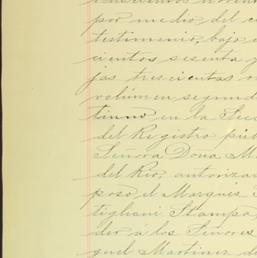 por medio del
testimonio, bajo
cientos sesenta y
jas trescientas
volúmen segundo
tinno en la Sec
del Registro púb
Señora Doña M
del Río, autoriza
poso, el Marqués
tigliani Stampa,
der á los Señores
guel Martinez de